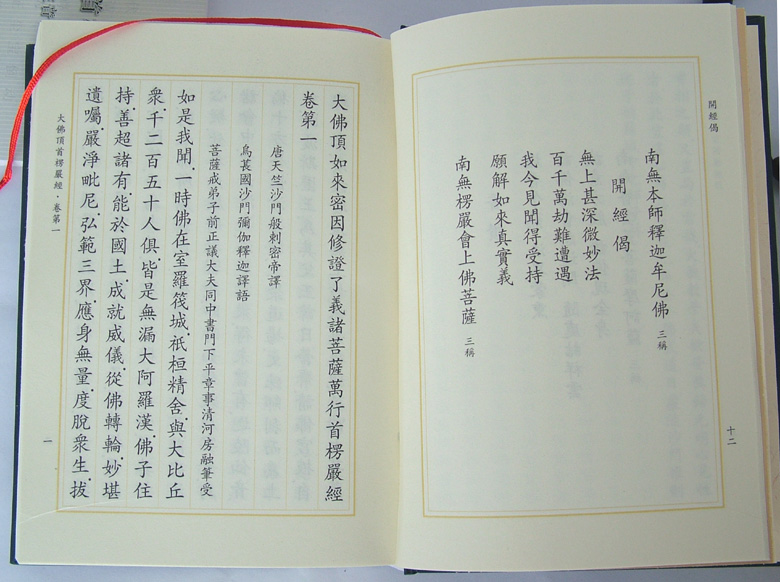 開經偈
南無本師釋迦牟尼佛 三稱
開經偈
無上甚深微妙法
百千萬劫難遭遇
我今見聞得受持
願解如來真實義
南無楞嚴會上佛菩薩 三稱
十二
大佛頂如來密因修證了義諸菩薩萬行首楞嚴經
卷第一
唐天竺沙門般剌密帝譯
烏萇國沙門彌伽釋迦譯語
菩薩戒弟子前正議大夫同中書門下平章事清河房融筆受
如是我聞.一時佛在室羅筏城.祇桓精舍.與大比丘
眾.千二百五十人俱.皆是無漏大阿羅漢.佛子住
持.善超諸有.能於國土.成就威儀.從佛轉輪.妙堪
遺囑.嚴淨毗尼.弘範三界.應身無量.度脫眾生.拔
大佛頂首楞嚴經．卷第一
一